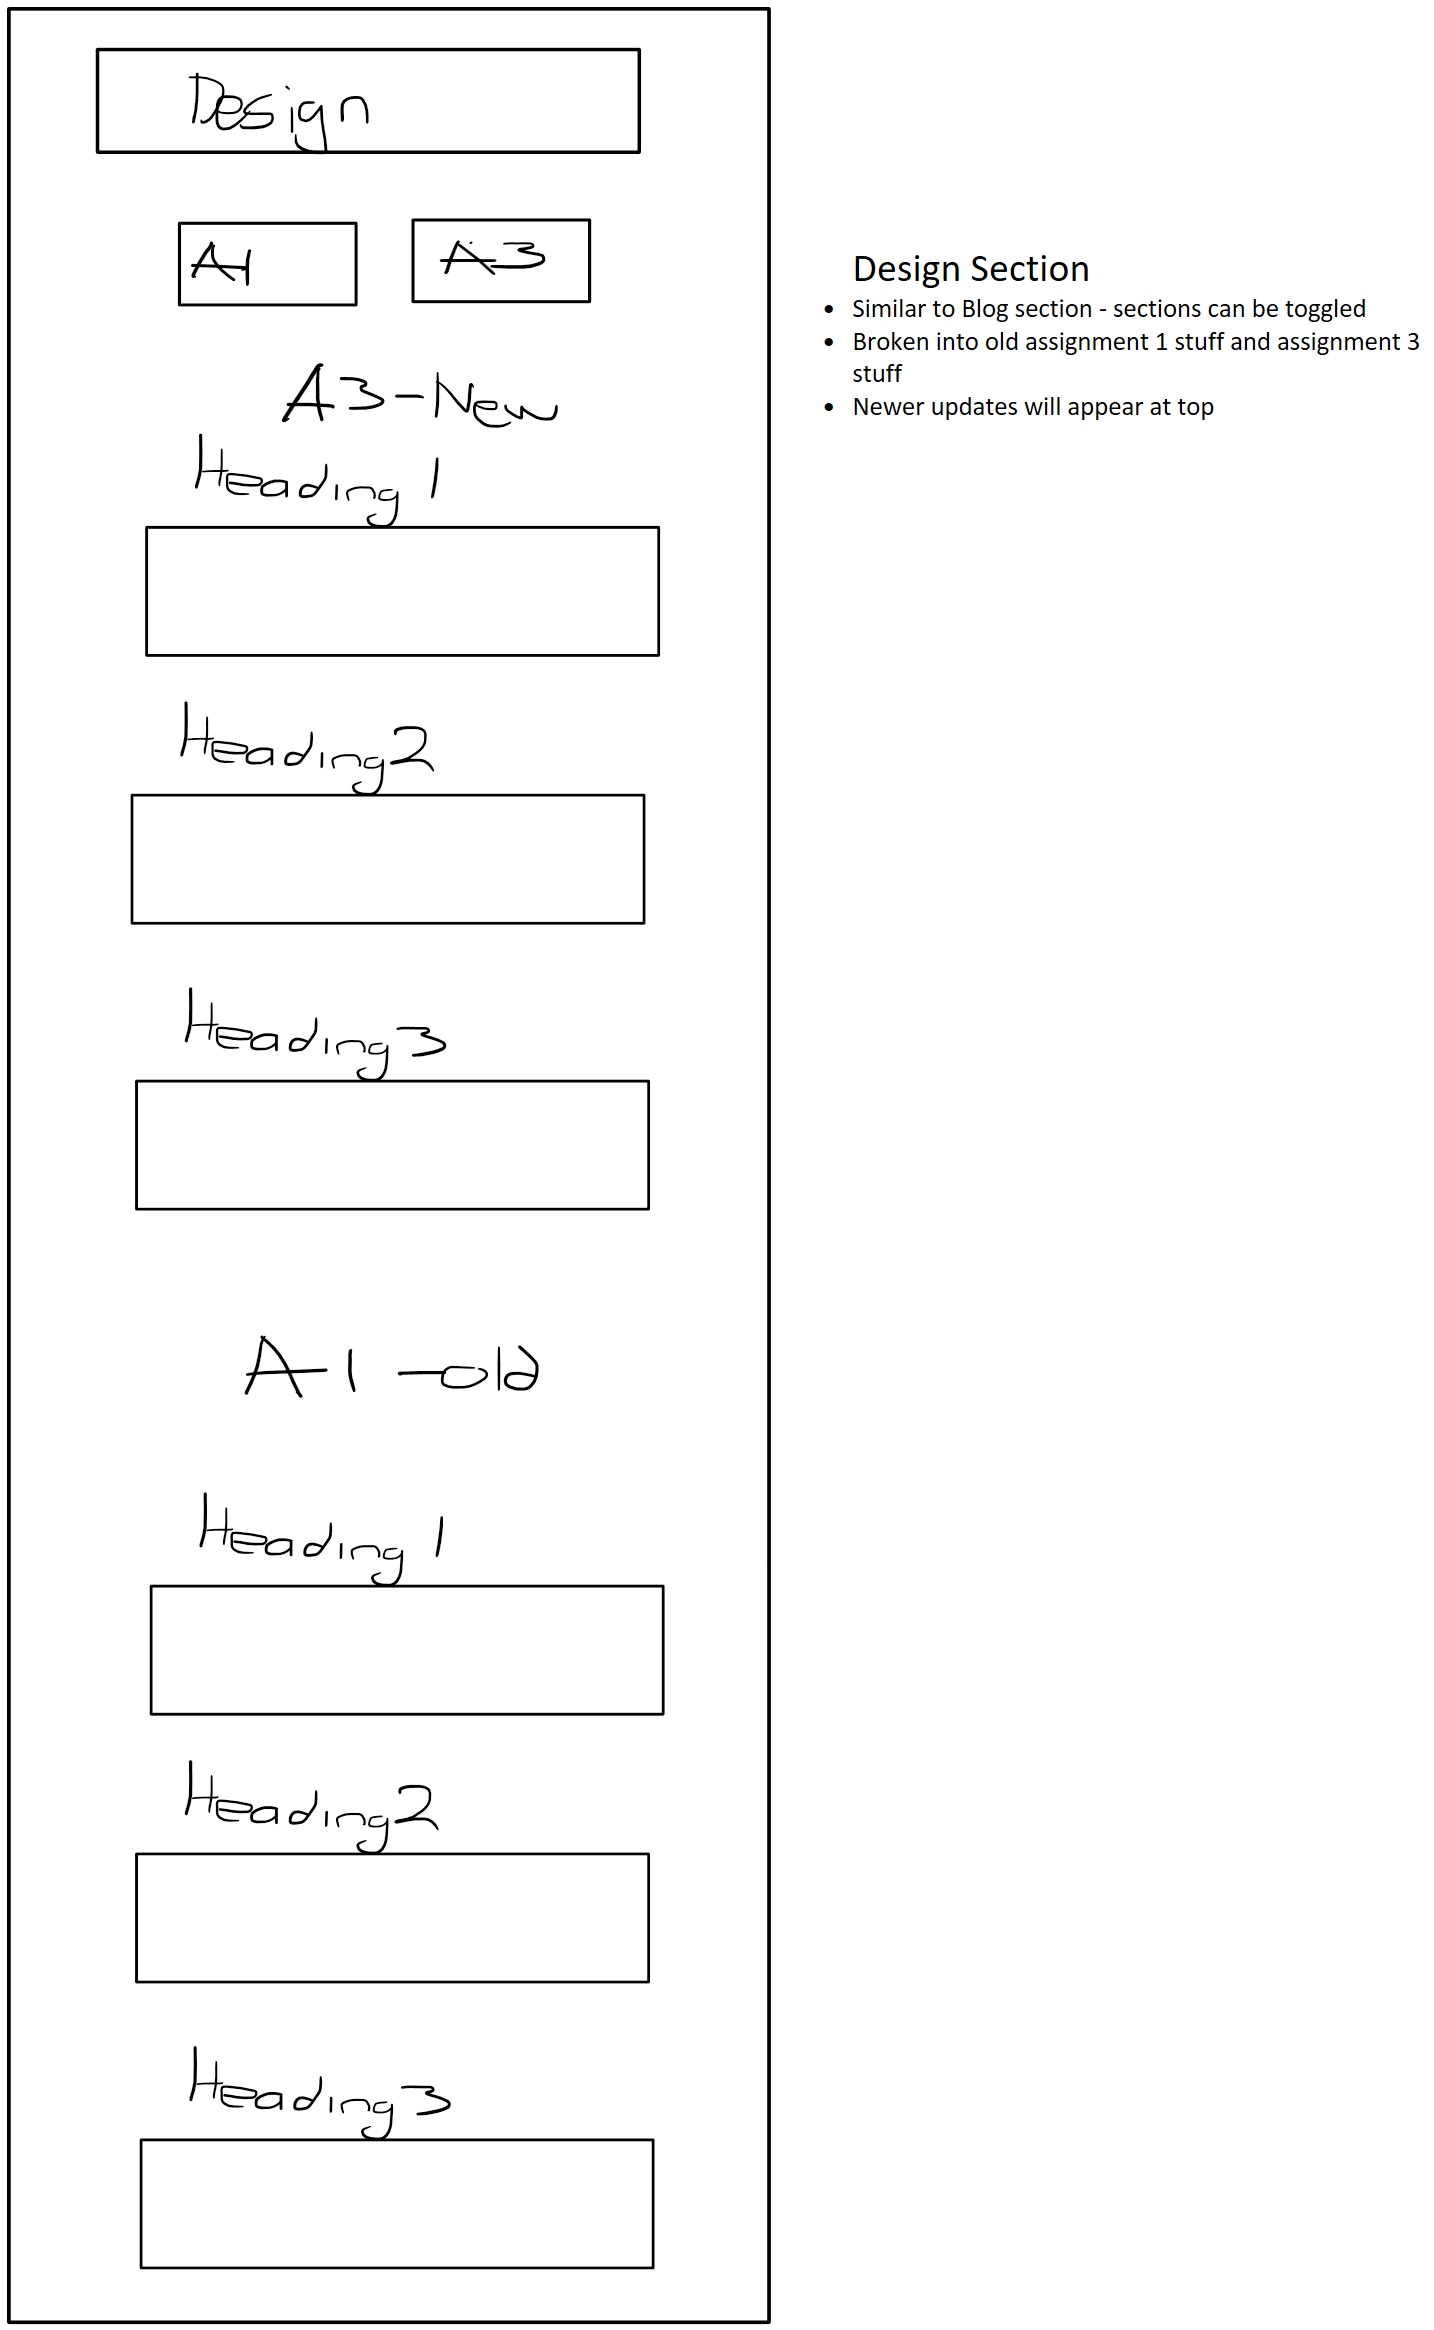 Design
A1
A3
A3-New
Heading 1
Heading 2
Heading 3
A1-old
Heading 1
Heading 2
Heading 3
Design Section
• Similar to Blog section - sections can be toggled
• Broken into old assignment 1 stuff and assignment 3
stuff
• Newer updates will appear at top